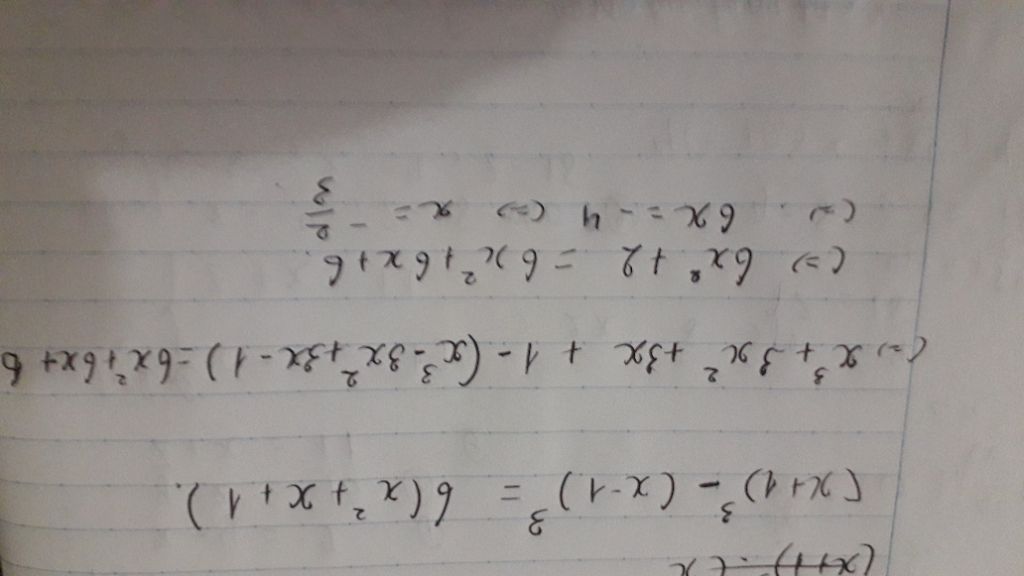 (x+1)³ - (x-1)³ = 6(x²+x+1).
(=) x³+3x²+3x+1-(x³-3x²+3x-1)=6x²+6x+6
(=) 6x²+2 = 6x²+6x+6.
(=). 6x = -4 (=) x = -2/3.